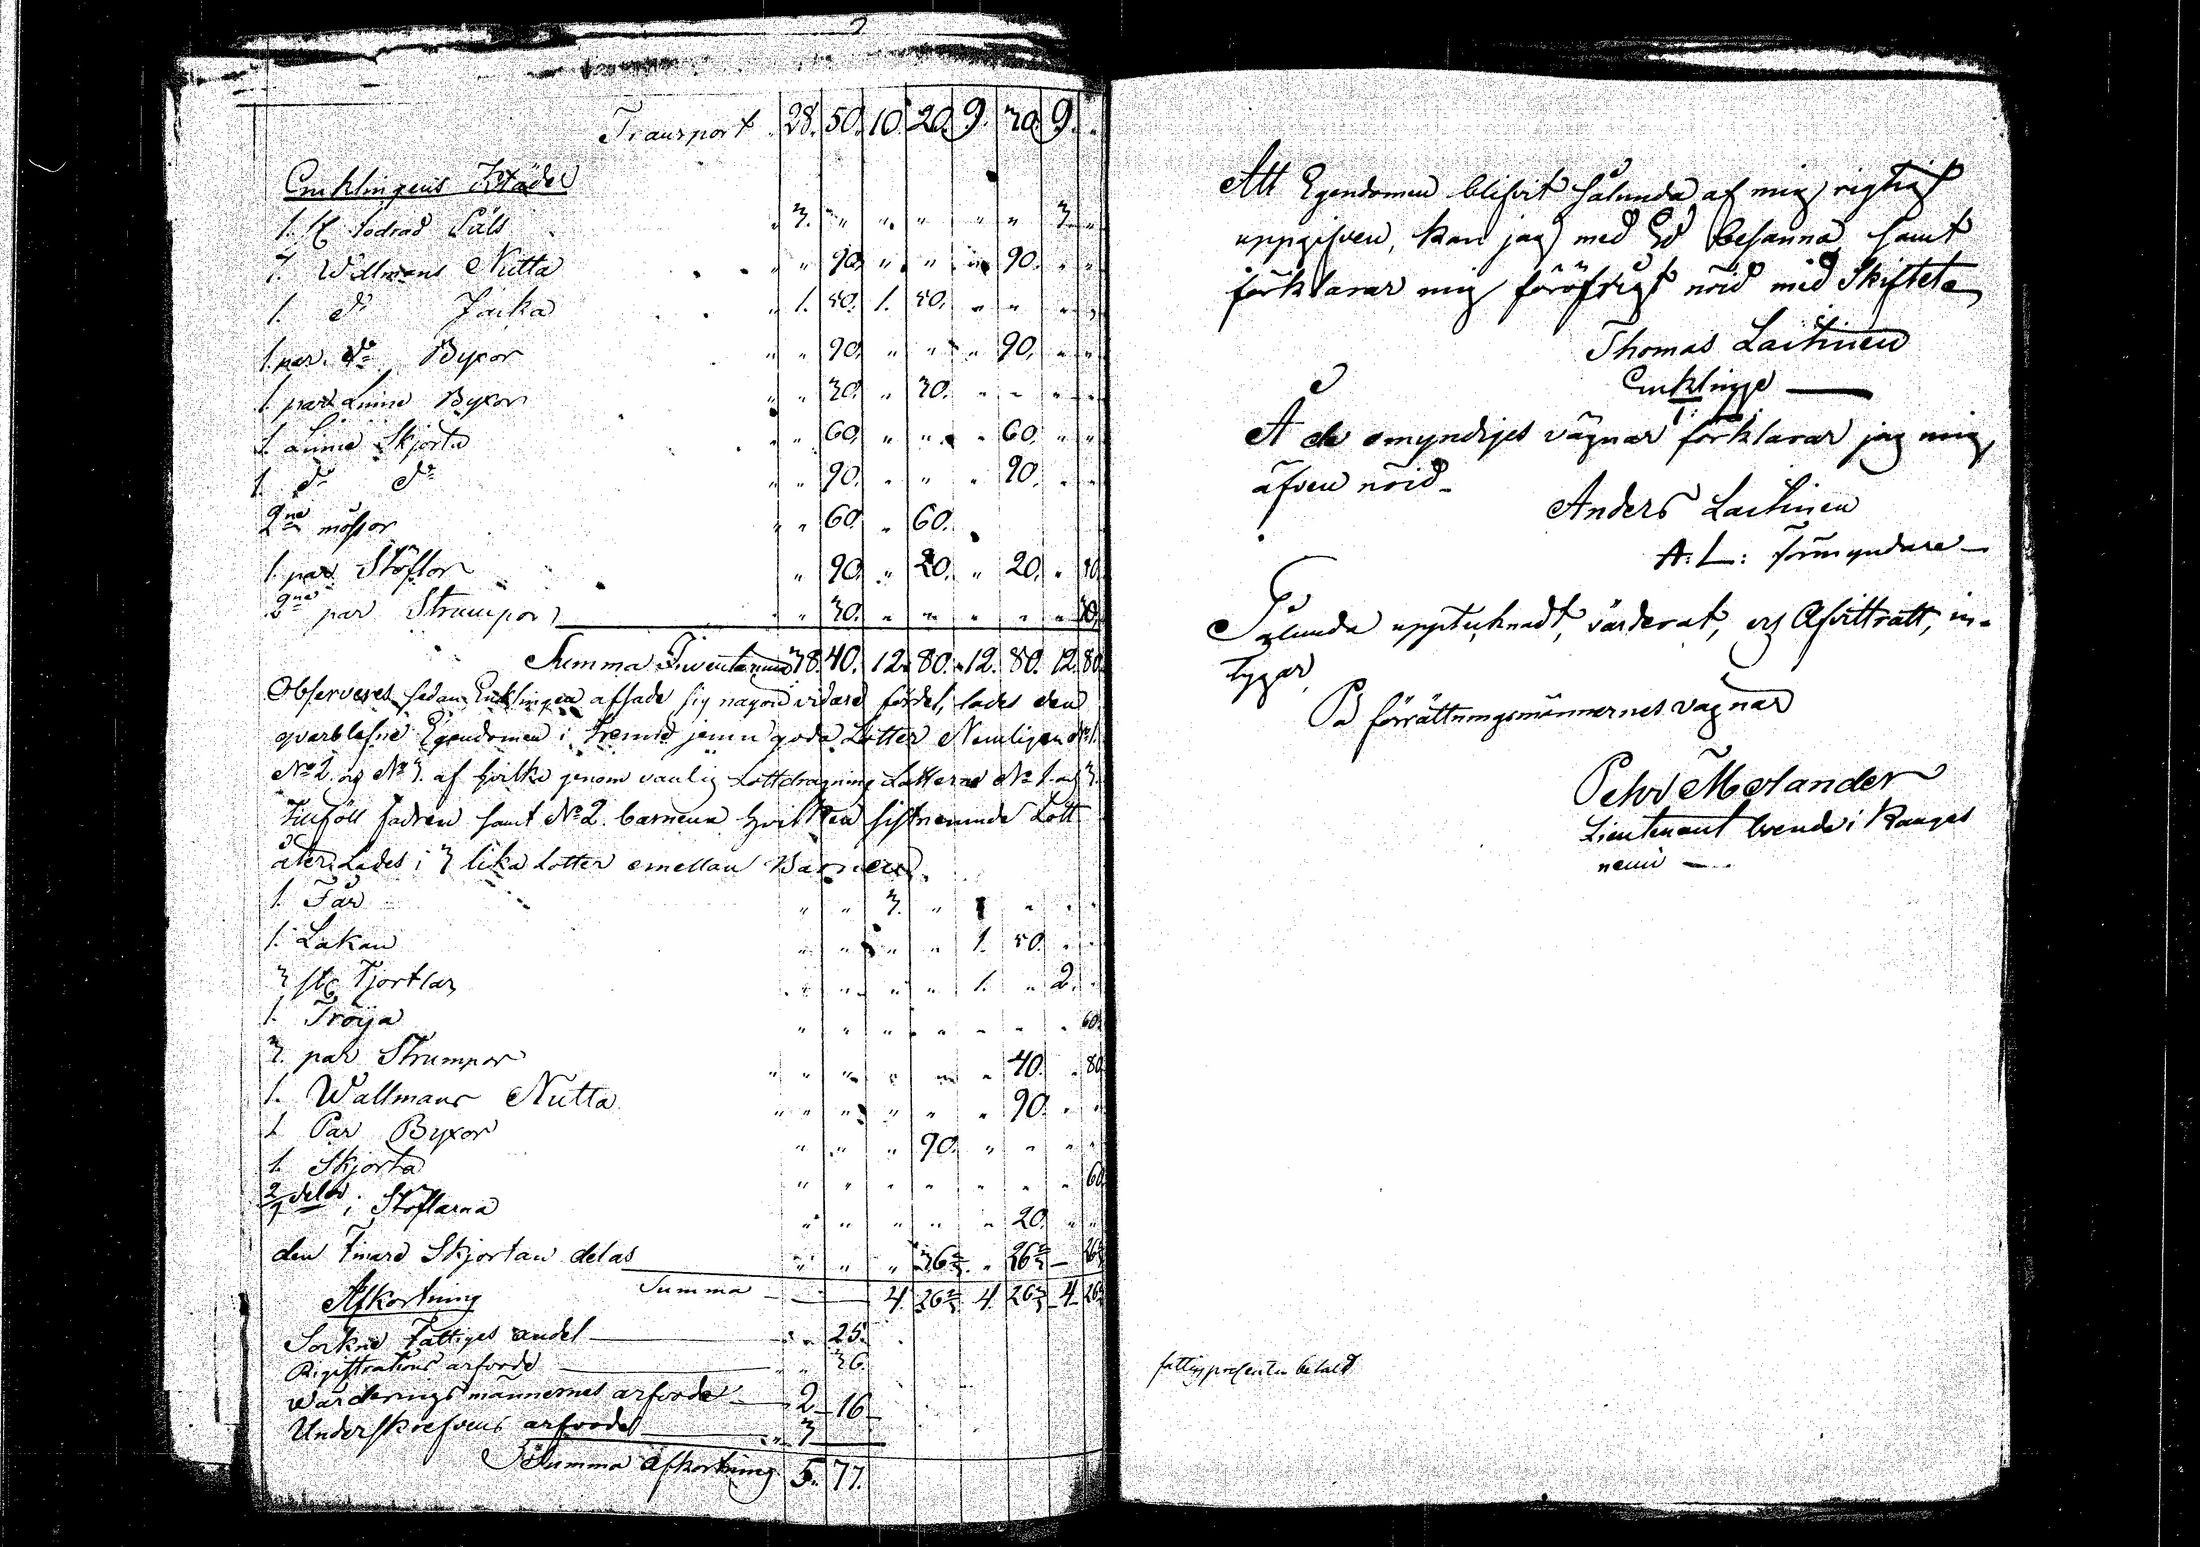 Transport 28. 50. 10. 20. 9. 30. 9. "
Enklingens Kläder
1. st fodrad Päls " 3. " " " " " 3. "
1. Wallmans Nutta " " 90. " " " 90. " "
1. do Jacka " 1. 50. 1. 50. " " " "
1. par do Byxor " " 90. " " " 90. " "
1. par Linne Byxor " " 30. " 30. " " " "
1. Linne Skjorta " " 60. " " " 60. " "
1. do do " " 90. " " " 90. " "
2ne mössor " " 60. " 60.
1. par Stöflor " 90. " 20. " 20. "
2ne par Strumpor " " 30. " " " " " 30.
Summa Inventarium 38. 40. 12. 80. 12. 80. 12. 80.
Observeres sedan Enklingen afsade sig någon vidare fördel, lades den
qvarblefne Egendomen i trenne jemn goda Lotter Nemligen No 1.
No 2. og No 3. af hvilka genom vanlig Lottdragning Lotterne No 1. og 3.
tilföll fadren samt No 2. barnen hvilken sistnemnde Lott
åter Lades i 3 lika Lotter emellan Barnen.
1. Får " " 3. " " " "
1. Lakan " " " " 1. 50. " "
3 st Kjortlar " " " " 1. " 2. "
1. Tröija " " " " " " " 60.
3. par Strumpor " " " " " " 40. " 80.
1. Wallmans Nutta " " " " " " 90. " "
1 Par Byxor " " " 90. " " " "
1. Skjorta " " " " " " " 60.
2/3 delar i Stöflarna " " " " " 20. " "
den finare Skjortan delas " " " 36 2/3. " 26 2/3 — 26 2/3
Summa — 4. 26 2/3 4. 26 2/3 4. 26 2/3
Afkortning
Sockne Fattiges andel — " " 25.
Registrations arfvode — " " 36.
Värderings männernes arfvode — 2 — 16 —
Underskrefvens arfvode — " 3 —
Summa Afkortning 5. 77.
Att Egendomen blifvit sålunda af mig rigtigt
uppgifven, kan jag med Ed besanna samt
förklarar mig föröfrigt nöid med Skiftet
Thomas Laitinen
Enklinge —
Å de omyndiges vägnar förklarar jag mig
äfven nöid.
Anders Laitinen
A: L: Förmyndare —
Sålunda upptecknadt, värderat, og Afvittratt, in-
tygar
På förrättningsmännernes vägnar
Pehr Molander
Lieutenant boende i Kanges
nemi —
fattigprocenten betald